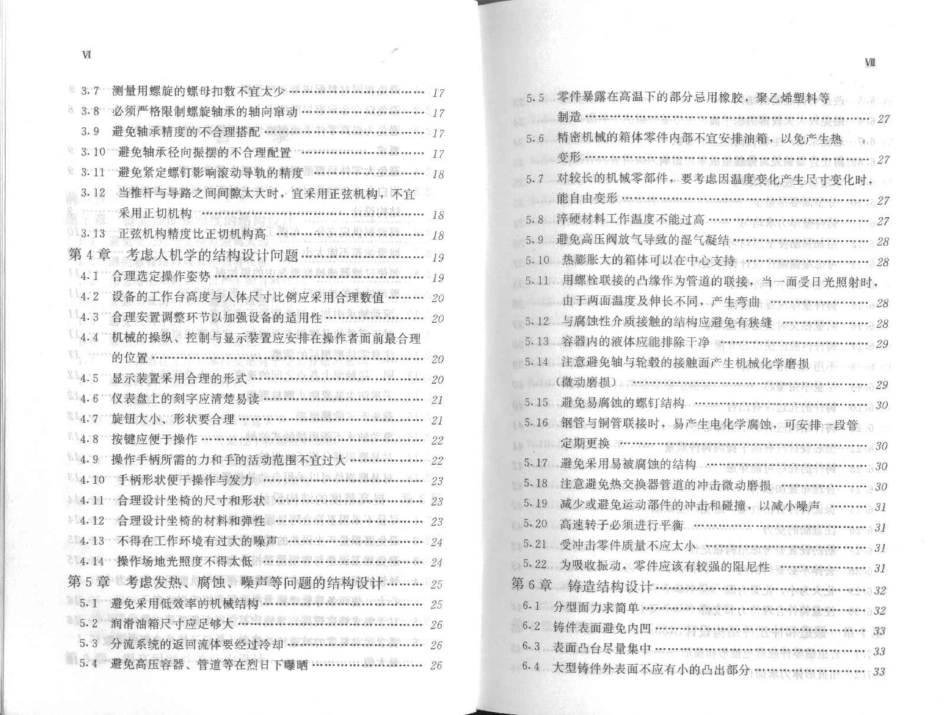 Ⅵ
3.7 测量用螺旋的螺母扣数不宜太少 17
3.8 必须严格限制螺旋轴承的轴向窜动 17
3.9 避免轴承精度的不合理搭配 17
3.10 避免轴承径向振摆的不合理配置 17
3.11 避免紧定螺钉影响滚动导轨的精度 18
3.12 当推杆与导路之间间隙太大时，宜采用正弦机构，不宜
采用正切机构 18
3.13 正弦机构精度比正切机构高 18
第 4 章 考虑人机学的结构设计问题 19
4.1 合理选定操作姿势 19
4.2 设备的工作台高度与人体尺寸比例应采用合理数值 20
4.3 合理安置调整环节以加强设备的适用性 20
4.4 机械的操纵、控制与显示装置应安排在操作者面前最合理
的位置 20
4.5 显示装置采用合理的形式 20
4.6 仪表盘上的刻字应清楚易读 21
4.7 旋钮大小、形状要合理 21
4.8 按键应便于操作 22
4.9 操作手柄所需的力和手的活动范围不宜过大 22
4.10 手柄形状便于操作与发力 23
4.11 合理设计坐椅的尺寸和形状 23
4.12 合理设计坐椅的材料和弹性 23
4.13 不得在工作环境有过大的噪声 24
4.14 操作场地光照度不得太低 24
第 5 章 考虑发热、腐蚀、噪声等问题的结构设计 25
5.1 避免采用低效率的机械结构 25
5.2 润滑油箱尺寸应足够大 26
5.3 分流系统的返回流体要经过冷却 26
5.4 避免高压容器、管道等在烈日下曝晒 26
Ⅶ
5.5 零件暴露在高温下的部分忌用橡胶，聚乙烯塑料等
制造 27
5.6 精密机械的箱体零件内部不宜安排油箱，以免产生热
变形 27
5.7 对较长的机械零部件，要考虑因温度变化产生尺寸变化时，
能自由变形 27
5.8 淬硬材料工作温度不能过高 27
5.9 避免高压阀放气导致的湿气凝结 28
5.10 热膨胀大的箱体可以在中心支持 28
5.11 用螺栓联接的凸缘作为管道的联接，当一面受日光照射时，
由于两面温度及伸长不同，产生弯曲 28
5.12 与腐蚀性介质接触的结构应避免有狭缝 28
5.13 容器内的液体应能排除干净 29
5.14 注意避免轴与轮毂的接触面产生机械化学磨损
（微动磨损） 29
5.15 避免易腐蚀的螺钉结构 30
5.16 钢管与铜管联接时，易产生电化学腐蚀，可安排一段管
定期更换 30
5.17 避免采用易被腐蚀的结构 30
5.18 注意避免热交换器管道的冲击微动磨损 30
5.19 减少或避免运动部件的冲击和碰撞，以减小噪声 31
5.20 高速转子必须进行平衡 31
5.21 受冲击零件质量不应太小 31
5.22 为吸收振动，零件应该有较强的阻尼性 31
第 6 章 铸造结构设计 32
6.1 分型面力求简单 32
6.2 铸件表面避免内凹 33
6.3 表面凸台尽量集中 33
6.4 大型铸件外表面不应有小的凸出部分 33